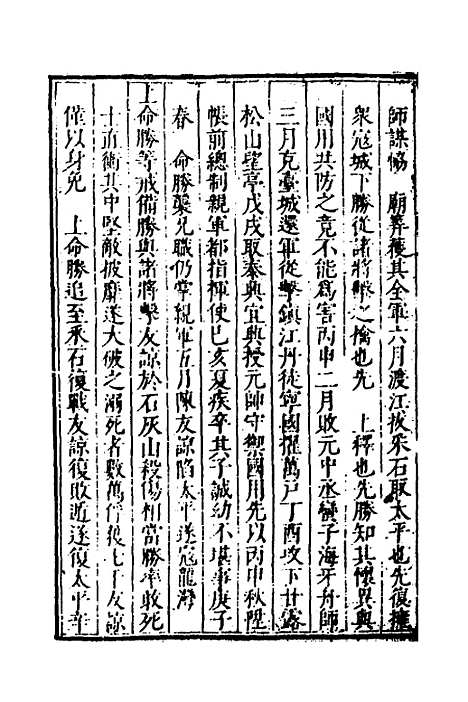 師謀愶　廟筭獲其全軍六月渡江拔采石取太平也先復擁
衆寇城下勝從諸將擊之擒也先　上釋也先勝知其懷異與
國用共防之竟不能爲害丙申二月敗元中丞蠻子海牙舟師
三月克臺城還軍從擊鎭江丹徒寧國擢萬戸丁酉攻下甘露
松山望亭戊戌取泰興宜興授元帥守禦國用先以丙申秋陞
帳前總制親軍都指揮使己亥夏疾卒其子誠幼不堪事庚子
春　命勝襲兄職仍掌親軍五月陳友諒陷太平遂寇龍灣
上命勝等戒備勝與諸將擊友諒於石灰山殺傷相當勝率敢死
士直衝其中堅敵披靡遂大破之溺死者數萬俘獲七千友諒
僅以身免　上命勝追至采石復戰友諒復敗遁遂復太平辛